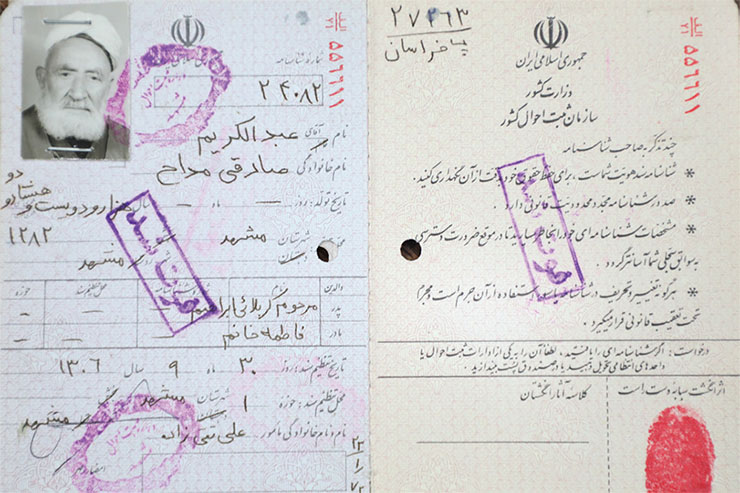 شماره شناسنامه
۲۴۰۸۲
نام آقای عبدالکریم
نام خانوادگی صادقی مداح
تاریخ تولد: روز — ماه — سال هزار و دویست و
هشتاد و
دو
۱۲۸۲
شهرستان مشهد
مشهد
والدین نام شناسنامه محل صدور حوزه
پدر مرحوم کربلائی ابراهیم — —
مادر فاطمه خانم — —
تاریخ تنظیم سند: روز ۳۰ ماه ۹ سال ۱۳۰۶
محل تنظیم سند: حوزه ۱ شهرستان مشهد
مشهد
نام و نام خانوادگی مامور علی تقی زاده
۲۲
۱
۷۲
فوت شد
۵۵۶۶۱۱
۲۷۴۶۳
خراسان
جمهوری اسلامی ایران
وزارت کشور
سازمان ثبت احوال کشور
چند تذکر به صاحب شناسنامه
* شناسنامه سند هویت شماست، برای حفظ حقوق خود بدقت از آن نگهداری کنید.
* صدور شناسنامه مجدد محدودیت قانونی دارد.
* مشخصات شناسنامه ای خود را بخاطر بسپارید تا در موقع ضرورت دسترسی
به سوابق سجلی شما آسانتر گردد.
* هرگونه تغییر و تحریف در شناسنامه یا سوء استفاده از آن جرم است و مجرم
تحت تعقیب قانونی قرار میگیرد.
درخواست: اگر شناسنامه ای را یافتید، لطفا آن را به یکی از ادارات ثبت احوال یا
واحدهای انتظامی تحویل دهید یا در صندوق پست بیندازید.
اثر انگشت سبابه دست راست
کلاسه آثار انگشتان
۵۵۶۶۱۱
فوت شد